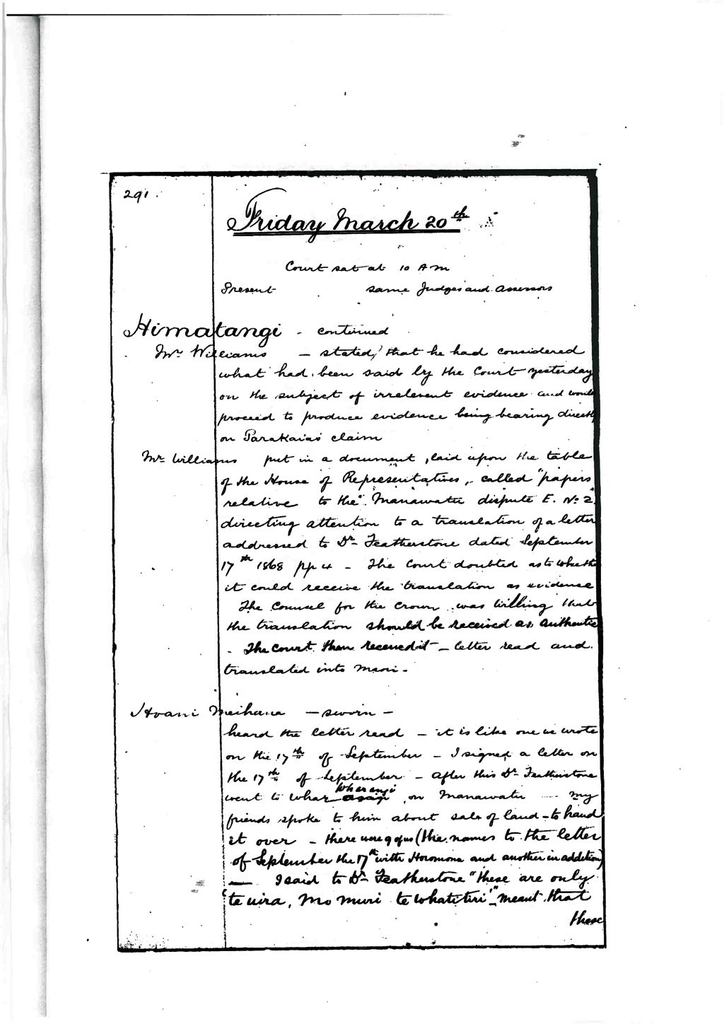 291.
Friday March 20th
Court sat at 10 A m
Present same Judges and Assessors
Himatangi - continued
Mr Williams — stated, that he had considered
what had been said by the Court yesterday
on the subject of irrelevent evidence and would
proceed to produce evidence being bearing direct
on Parakaias claim
Mr Williams put in a document, laid upon the table
of the House of Representatives, called "papers
relative to the "Manawatu dispute E. No 2"
directing attention to a translation of a letter
addressed to Dr Featherstone dated September
17th 1868 pp 4 - The Court doubted as to whether
it could receive the translation as evidence
The Counsel for the Crown was willing that
the translation should be received as authentic
- The Court then received it - letter read and
translated into Maori -
Hoani Meihana — sworn —
heard the letter read - it is like one we wrote
on the 17th of September - I signed a letter on
the 17th of September - After this Dr Featherstone
Wharangi
went to on Manawatu — my
friends spoke to him about sale of land - to hand
it over - there were 9 of us (the names to the letter
of September the 17th with Horomona and another in addition)
— I said to Dr Featherstone "these are only
'te uira, mo muri te whatitiri'" meant that
those